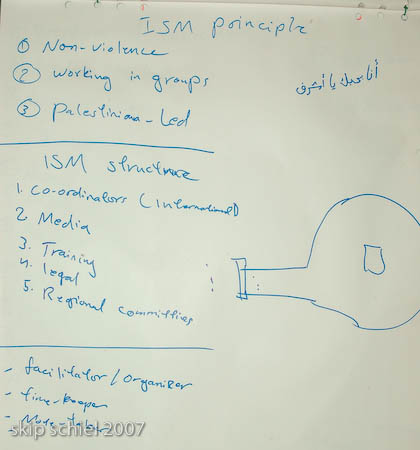 ISM principle
① Non-violence
② working in groups
③ palestinian-Led
أنا بحبك يا أشرف
ISM structure
1. co-ordinators (International)
2. Media
3. Training
4. legal
5. Regional committies
- facilitator/organizer
- time-keeper
- Note-taker
skip schiel 2007